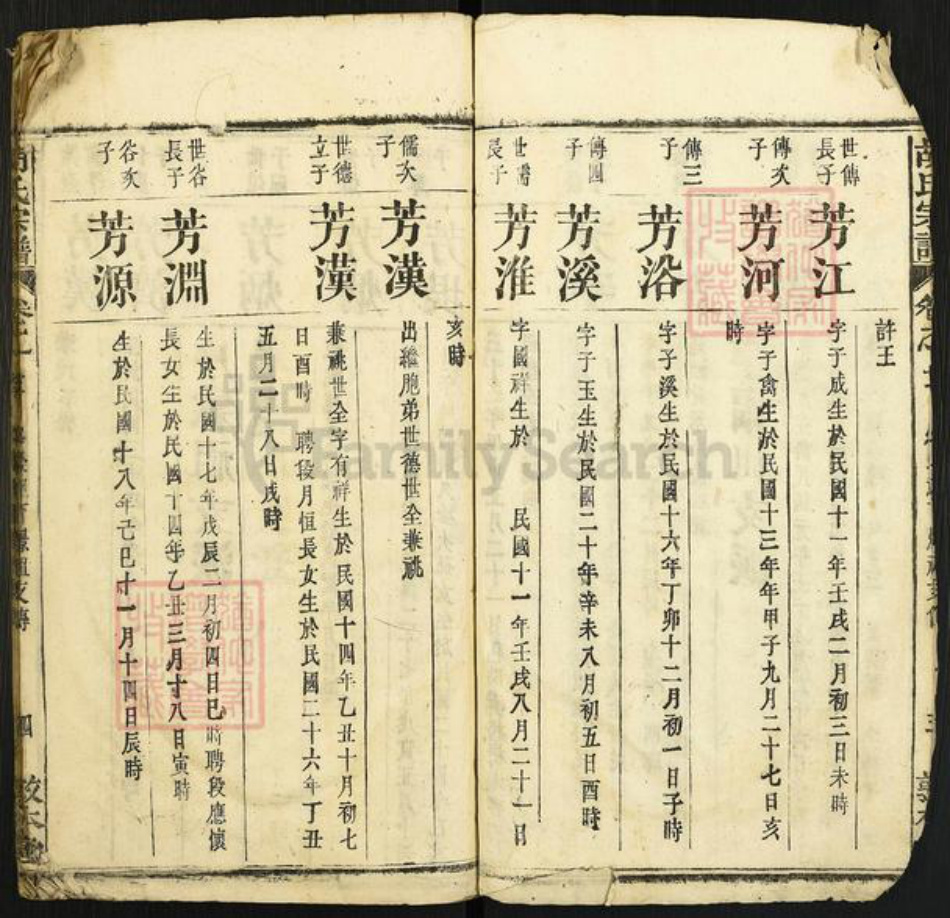 許王
世傳
長子
芳江
字子成生於民國十一年壬戌二月初三日未時
傳次
子
芳河
字子禽生於民國十三年年甲子九月二十七日亥
時
傳三
子
芳浴
字子溪生於民國十六年丁卯十二月初一日子時
傳四
子
芳溪
字子玉生於民國二十年辛未八月初五日酉時
世儒
長子
芳淮
字國祥生於 民國十一年壬戌八月二十一日
亥時
儒次
子
芳漢
出繼胞弟世德世全兼祧
世德
立子
芳漢
兼祧世全字有祥生於民國十四年乙丑十月初七
日酉時 聘段月恒長女生於民國二十六年丁丑
五月二十八日戌時
世谷
長子
芳淵
生於民國十七年戊辰二月初四日巳時聘段應懷
長女生於民國十四年乙丑三月十八日寅時
谷次
子
芳源
生於民國十八年己巳十一月十四日辰時
胡氏宗譜
四
敦本堂
FamilySearch